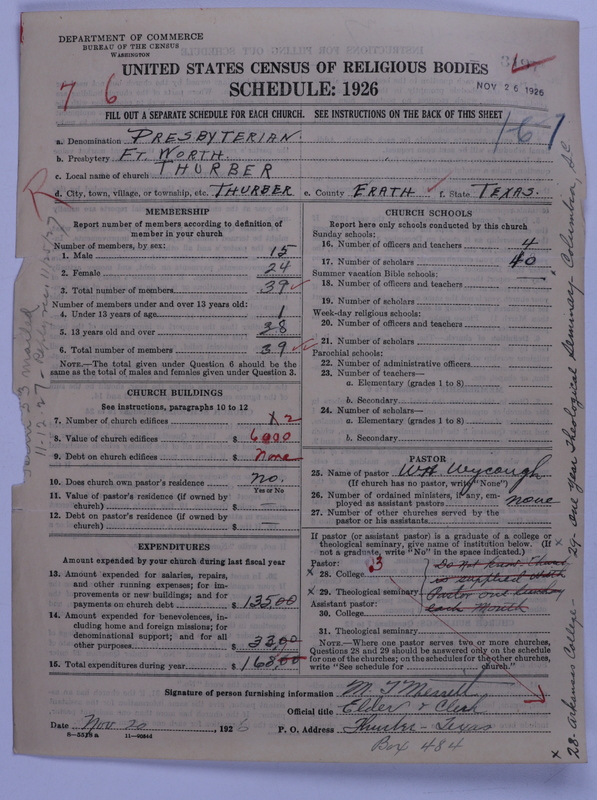 DEPARTMENT OF COMMERCE
BUREAU OF THE CENSUS
WASHINGTON
UNITED STATES CENSUS OF RELIGIOUS BODIES
SCHEDULE: 1926
NOV 26 1926
7 6
FILL OUT A SEPARATE SCHEDULE FOR EACH CHURCH. SEE INSTRUCTIONS ON THE BACK OF THIS SHEET
167
a. Denomination PRESBYTERIAN.
b. Presbytery FT. WORTH.
c. Local name of church THURBER
d. City, town, village, or township, etc. THURBER e. County ERATH f. State TEXAS.
R
MEMBERSHIP
Report number of members according to definition of
member in your church
Number of members, by sex:
1. Male 15
2. Female 24
3. Total number of members 39
Number of members under and over 13 years old:
4. Under 13 years of age 1
5. 13 years old and over 38
6. Total number of members 39
NOTE.—The total given under Question 6 should be the
same as the total of males and females given under Question 3.
CHURCH BUILDINGS
See instructions, paragraphs 10 to 12
7. Number of church edifices 2
8. Value of church edifices $ 6000
9. Debt on church edifices $ None
10. Does church own pastor's residence no.
Yes or No
11. Value of pastor's residence (if owned by
church) $ —
12. Debt on pastor's residence (if owned by
church) $ —
EXPENDITURES
Amount expended by your church during last fiscal year
13. Amount expended for salaries, repairs,
and other running expenses; for im-
provements or new buildings; and for
payments on church debt $ 135.00
14. Amount expended for benevolences, in-
cluding home and foreign missions; for
denominational support; and for all
other purposes $ 33.00
15. Total expenditures during year $ 168.00
CHURCH SCHOOLS
Report here only schools conducted by this church
Sunday schools:
16. Number of officers and teachers 4
17. Number of scholars 40
Summer vacation Bible schools:
18. Number of officers and teachers
19. Number of scholars
Week-day religious schools:
20. Number of officers and teachers
21. Number of scholars
Parochial schools:
22. Number of administrative officers
23. Number of teachers—
a. Elementary (grades 1 to 8)
b. Secondary
24. Number of scholars—
a. Elementary (grades 1 to 8)
b. Secondary
PASTOR
25. Name of pastor WH Wycough
(If church has no pastor, write "None")
26. Number of ordained ministers, if any, em-
ployed as assistant pastors none
27. Number of other churches served by the
pastor or his assistants
If pastor (or assistant pastor) is a graduate of a college or
theological seminary, give name of institution below. (If
not a graduate, write "No" in the space indicated.)
Pastor: 3 Do not know. Church
x 28. College is supplied with
x 29. Theological seminary Pastor one Sunday
Assistant pastor: each Month
30. College
31. Theological seminary
NOTE.—Where one pastor serves two or more churches,
Questions 28 and 29 should be answered only on the schedule
for one of the churches; on the schedules for the other churches,
write "See schedule for church."
Signature of person furnishing information
Official title Elder & Clerk
Date Nov 20, 1926 P. O. Address Thurber - Texas
Box 484
8—5519a
x 28- Arkansas College - 29- one year Theological Seminary, Columbia, SC